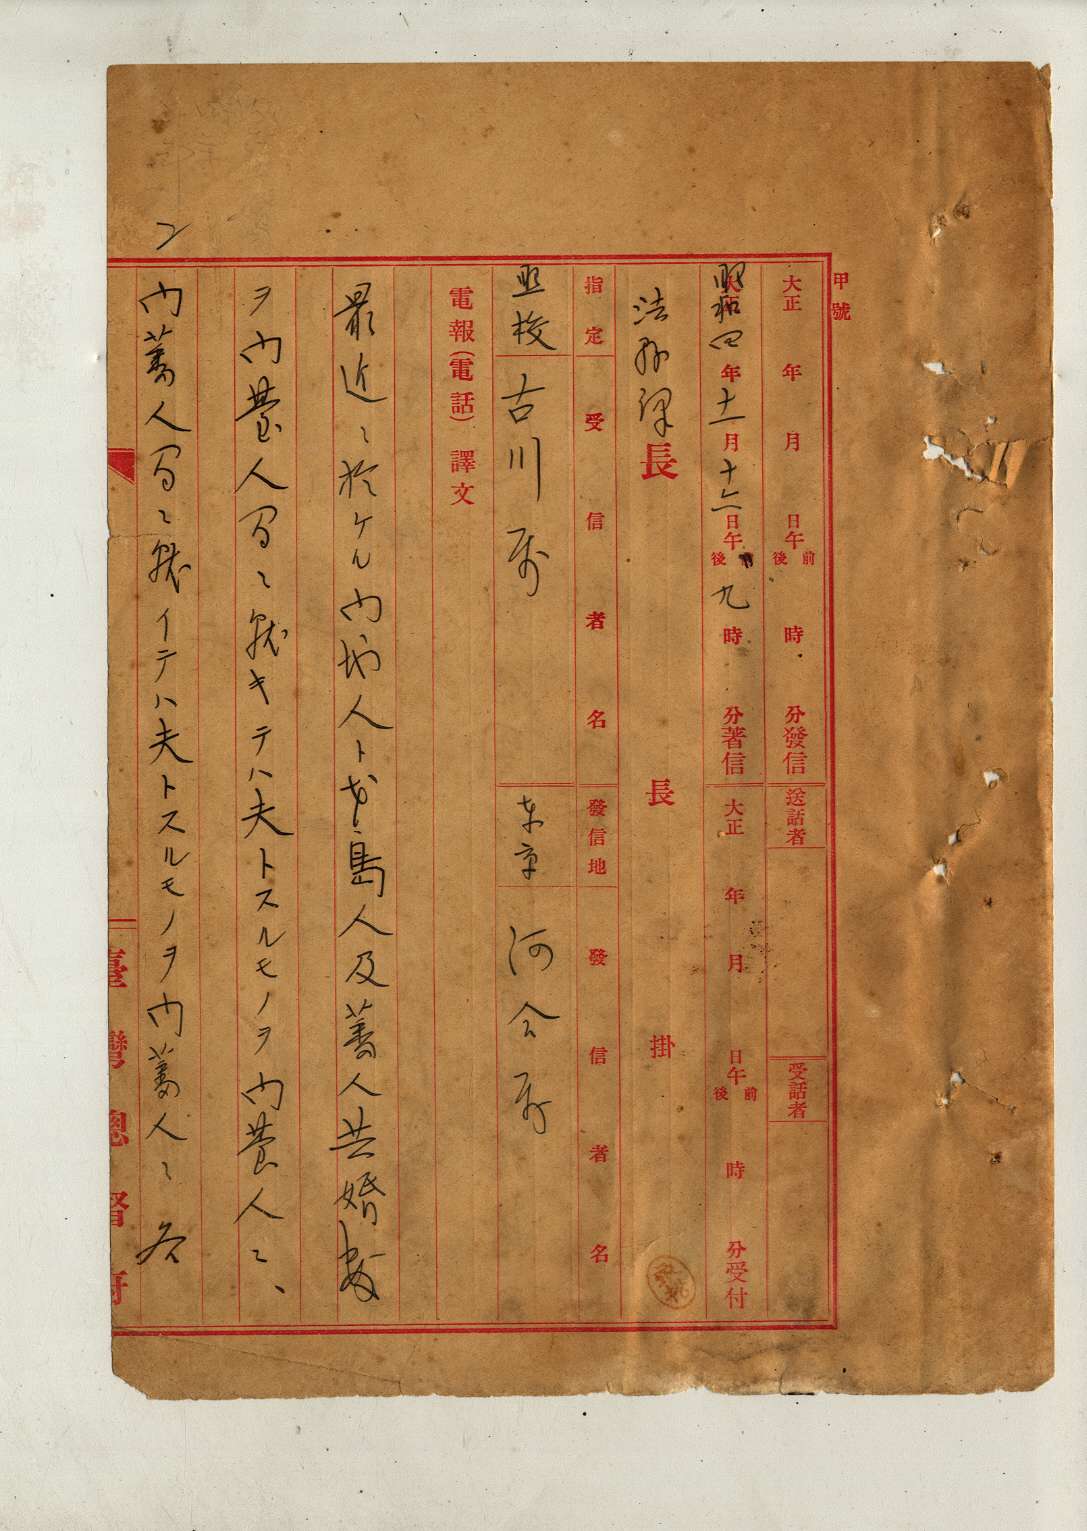 甲號
大正 年 月 日午前後 時 分發信 送話者 受話者
昭和四年十一月十六日午後前 九時 分著信 大正 年 月 日午前後 時 分受付
法務課長 長 掛
指定 受信者名 發信地 發信者名
至校 古川 東京 河合
電報(電話)譯文
最近ニ於ケル内地人ト本島人及蕃人共婚數
ヲ内臺人間ニ就キテハ夫トスルモノヲ内臺人ニ、
内蕃人間ニ就イテハ夫トスルモノヲ内蕃人ニ各
臺灣總督府